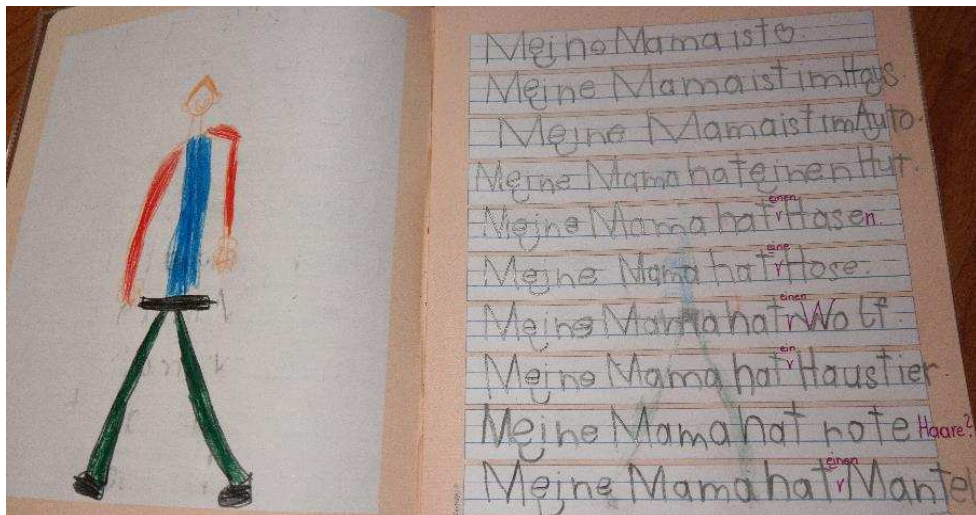 Meine Mama ist
Meine Mama ist im Haus.
Meine Mama ist im Auto.
Meine Mama hat einen Hut.
Meine Mama hat einen Hasen.
Meine Mama hat eine Hose.
Meine Mama hat einen Wolf.
Meine Mama hat ein Haustier.
Meine Mama hat rote Haare?
Meine Mama hat einen Mantel